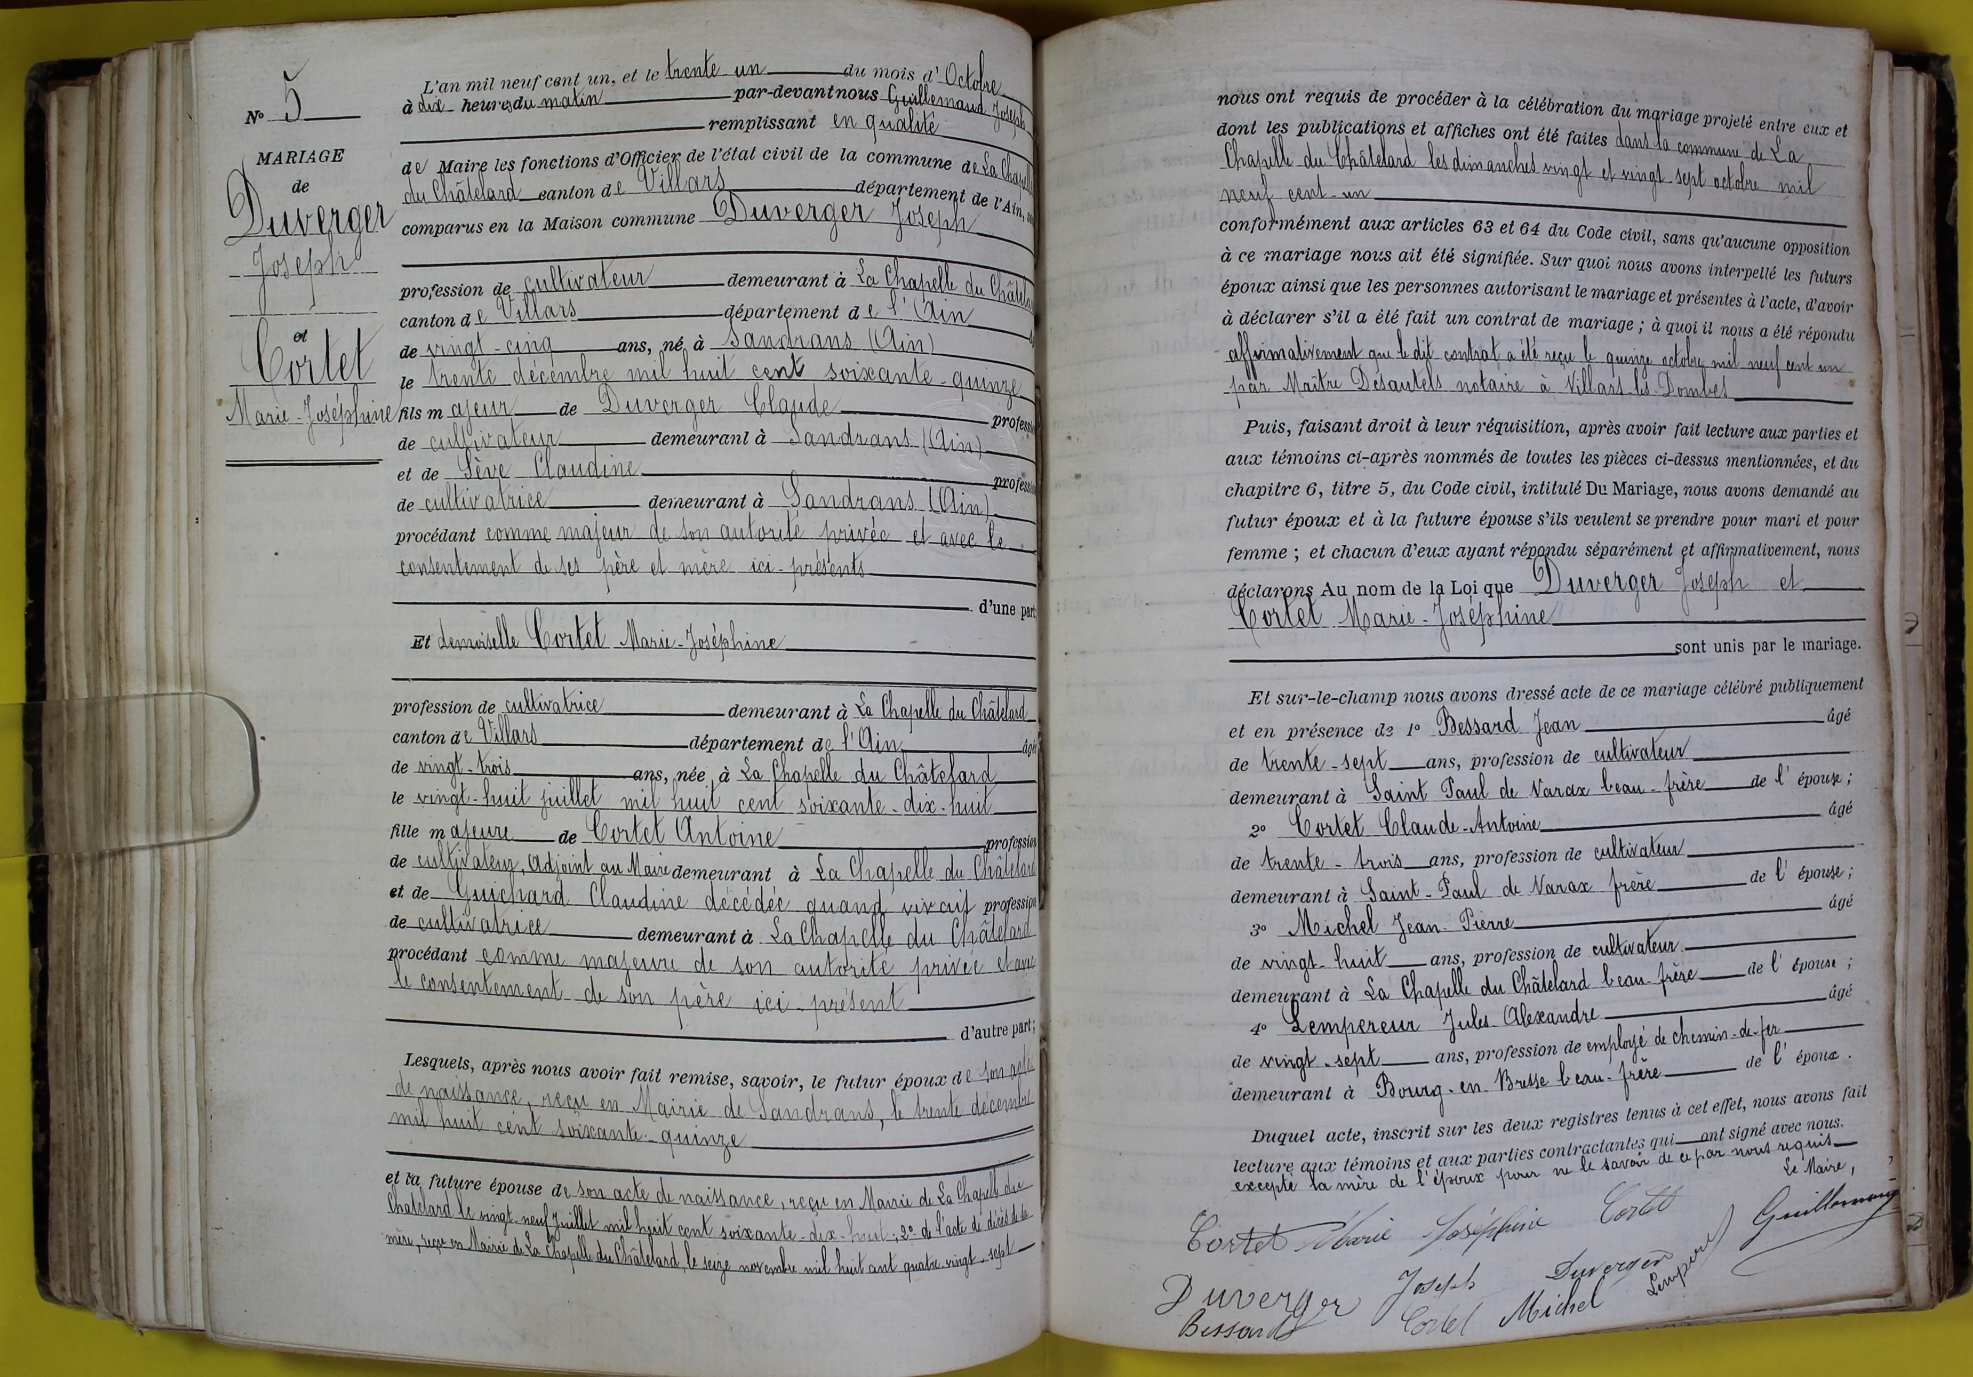 N° 5
MARIAGE
de
Duverger
Joseph
et
Cortet
Marie-Joséphine
L'an mil neuf cent un, et le trente un du mois d'Octobre
à dix heures du matin par-devant nous Guillemaud Joseph
remplissant en qualité
de Maire les fonctions d'Officier de l'état civil de la commune de La Chapelle
du Châtelard canton de Villars département de l'Ain,
comparus en la Maison commune Duverger Joseph
profession de cultivateur demeurant à La Chapelle du Châtelard
canton de Villars département de l'Ain
de vingt-cinq ans, né à Sandrans (Ain)
le trente décembre mil huit cent soixante-quinze
fils majeur de Duverger Claude profession
de cultivateur demeurant à Sandrans (Ain)
et de Sève Claudine profession
de cultivatrice demeurant à Sandrans (Ain)
procédant comme majeur de son autorité privée et avec le
consentement de ses père et mère ici-présents
d'une part;
Et demoiselle Cortet Marie-Joséphine
profession de cultivatrice demeurant à La Chapelle du Châtelard
canton de Villars département de l'Ain âgé
de vingt-trois ans, née à La Chapelle du Châtelard
le vingt-huit juillet mil huit cent soixante-dix-huit
fille majeure de Cortet Antoine profession
de cultivateur, adjoint au Maire demeurant à La Chapelle du Châtelard
et de Guichard Claudine décédée quand vivait profession
de cultivatrice demeurant à La Chapelle du Châtelard
procédant comme majeure de son autorité privée et avec
le consentement de son père ici-présent
d'autre part;
Lesquels, après nous avoir fait remise, savoir, le futur époux de son acte
de naissance, reçu en Mairie de Sandrans, le trente décembre
mil huit cent soixante-quinze
et la future épouse de son acte de naissance, reçu en Mairie de La Chapelle du
Châtelard le vingt-neuf Juillet mil huit cent soixante-dix-huit; 2° de l'acte de décès de la
mère, reçu en Mairie de La Chapelle du Châtelard, le seize novembre mil huit cent quatre-vingt-sept
nous ont requis de procéder à la célébration du mariage projeté entre eux et
dont les publications et affiches ont été faites dans la commune de La
Chapelle du Châtelard les dimanches vingt et vingt-sept octobre mil
neuf cent-un
conformément aux articles 63 et 64 du Code civil, sans qu'aucune opposition
à ce mariage nous ait été signifiée. Sur quoi nous avons interpellé les futurs
époux ainsi que les personnes autorisant le mariage et présentes à l'acte, d'avoir
à déclarer s'il a été fait un contrat de mariage; à quoi il nous a été répondu
affirmativement que le dit contrat a été reçu le quinze octobre mil neuf cent un
par Maître Désautels notaire à Villars-les-Dombes
Puis, faisant droit à leur réquisition, après avoir fait lecture aux parties et
aux témoins ci-après nommés de toutes les pièces ci-dessus mentionnées, et du
chapitre 6, titre 5, du Code civil, intitulé Du Mariage, nous avons demandé au
futur époux et à la future épouse s'ils veulent se prendre pour mari et pour
femme; et chacun d'eux ayant répondu séparément et affirmativement, nous
déclarons Au nom de la Loi que Duverger Joseph et
Cortet Marie-Joséphine
sont unis par le mariage.
Et sur-le-champ nous avons dressé acte de ce mariage célébré publiquement
et en présence de 1° Bessard Jean âgé
de trente-sept ans, profession de cultivateur
demeurant à Saint Paul de Varax beau-frère de l'épouse;
2° Cortet Claude-Antoine âgé
de trente-trois ans, profession de cultivateur
demeurant à Saint-Paul de Varax frère de l'épouse;
3° Michel Jean-Pierre âgé
de vingt-huit ans, profession de cultivateur
demeurant à La Chapelle du Châtelard beau-frère de l'épouse;
4° Lempereur Jules-Alexandre âgé
de vingt-sept ans, profession de employé de chemin-de-fer
demeurant à Bourg-en-Bresse beau-frère de l'époux.
Duquel acte, inscrit sur les deux registres tenus à cet effet, nous avons fait
lecture aux témoins et aux parties contractantes qui ont signé avec nous.
excepté la mère de l'époux pour ne le savoir de ce par nous requis
Le Maire,
Cortet Marie Joséphine Cortet Guillemaud
Duverger Joseph Duverger Lempereur
Bessard Cortet Michel